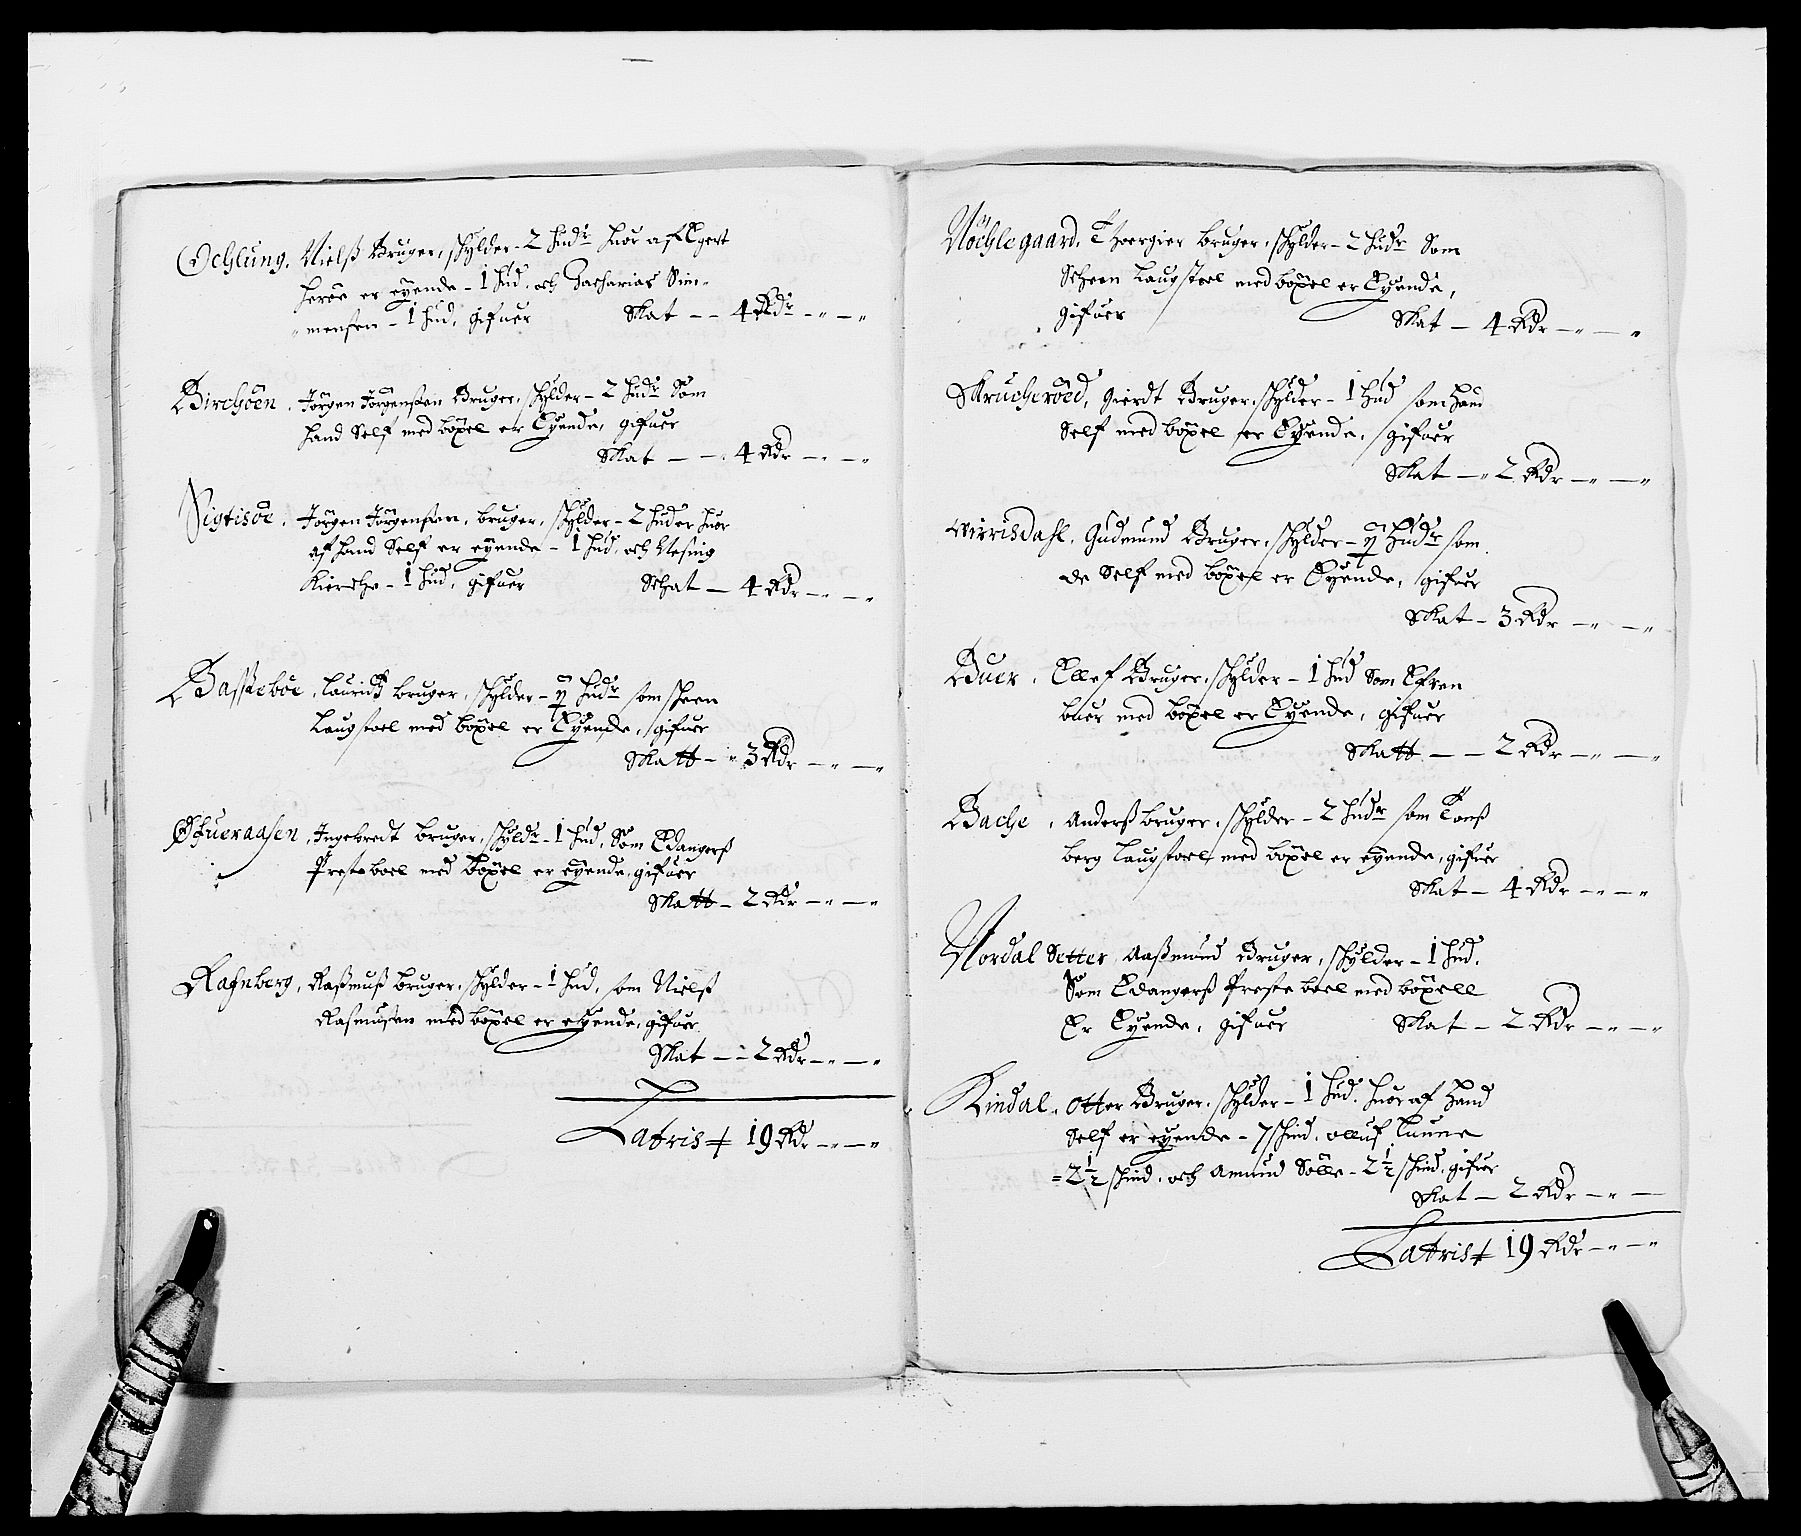 Ochlung. Nielß Bruger, schylder - 2 hudr huor af Egert
heröe er eyende - 1 hud, och Zacharias Sim-
mensen - 1 hud, gifuer Skat - - 4 Rdr - " - "
Birchöen. Jörgen Jörgenßen Bruger, schylder - 2 hudr Som
hand Self med böxel er Eyende, gifuer
Skat - - 4 Rdr - " - "
Sigtisöe. Jörgen Jörgenßen, bruger, schylder - 2 huder huor
af hand Self er eyende - 1 hud, och Nesing
Kirche - 1 hud, gifuer Schat - 4 Rdr - " - "
Basseböe, Lauridß bruger, schylder - hudr som scheen
Laugstoel med böxel er Eyende, gifuer
Skatt - " 3 Rdr - " - "
Ofueraasen, Ingebredt bruger, schyldr - 1 hud, Som Edangerß
Preste boel med böxel er eyende, gifuer
Skatt - 2 Rdr - " - "
Rafnberg, Raßmuß bruger, schylder - 1 hud, som Nielß
Rasmusen med böxel er eyende, gifuer
Skat - - 2 Rdr - " - "
Latris 19 Rdr - " - "
Nöchlegaard, Thoergier bruger, schylder - 2 hudr Som
Scheen Laugstoel med böxel er Eyende,
gifuer Skat - 4 Rdr - " - "
Skrucheröed, Gierdt Bruger, schylder - 1 hud som hand
Self med böxel er Eyende, gifuer
Skat - " 2 Rdr - " - "
Mirrisdahl, Gudmund Bruger, schylder - hudr som
de Self med böxel er Eyende, gifuer
Skat - 3 Rdr - " - "
Buer, Ellef Bruger, schylder - 1 hud Som Efven
buer med böxel er Eyende, gifuer
Skatt - - 2 Rdr - " - "
Bache, Anderß bruger, schylder - 2 hudr som Tonß
berg Laugstoel med böxel er eyende, gifuer
Skat - 4 Rdr - " - "
Nordal Setter Aaßmund Bruger, schylder - 1 hud,
Som Edangerß Preste boel med böxell
Er Eyende, gifuer Skat - 2 Rdr - " - "
Kindal, Otter Bruger, schylder - 1 hud, huor af hand
Self er eyende - 7 schind, olluf Laune
= 2 1/2 schind, och Amund Sölle - 2 1/2 schind, gifuer
Skat - 2 Rdr - " -
Latris 19 Rdr - " - "